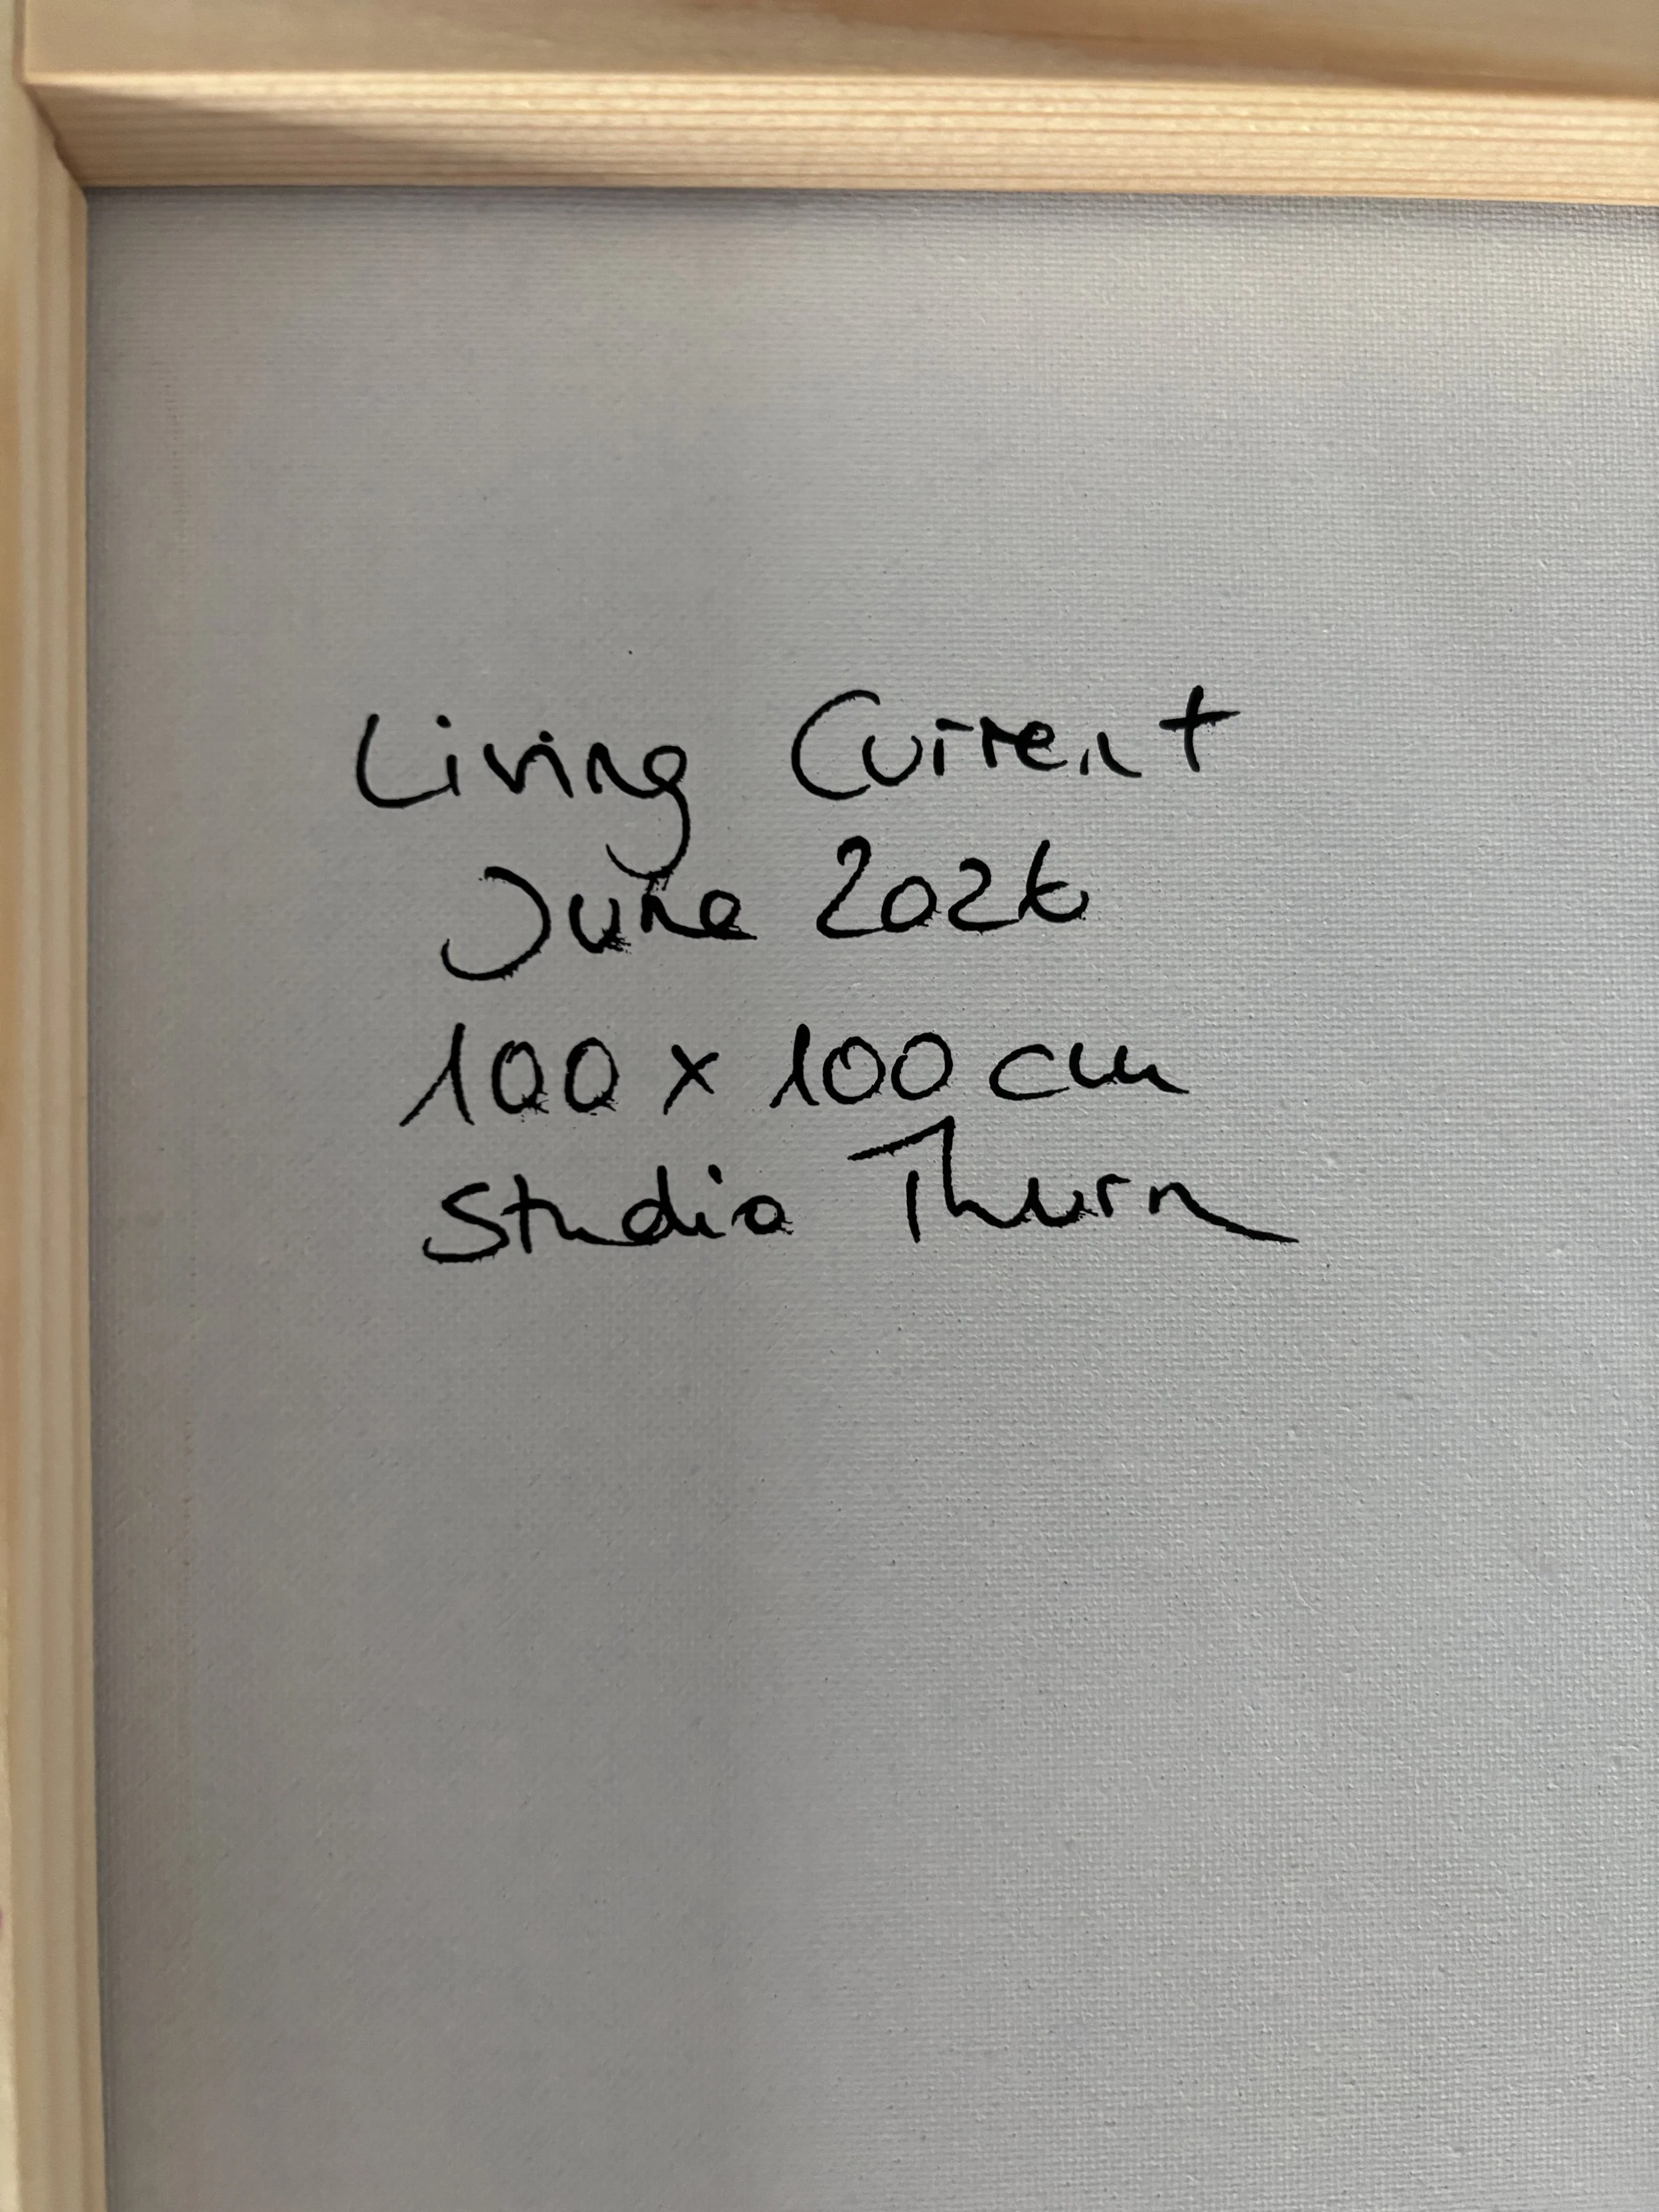 Living Current
June 2026
100 x 100 cm
Studio Thurn